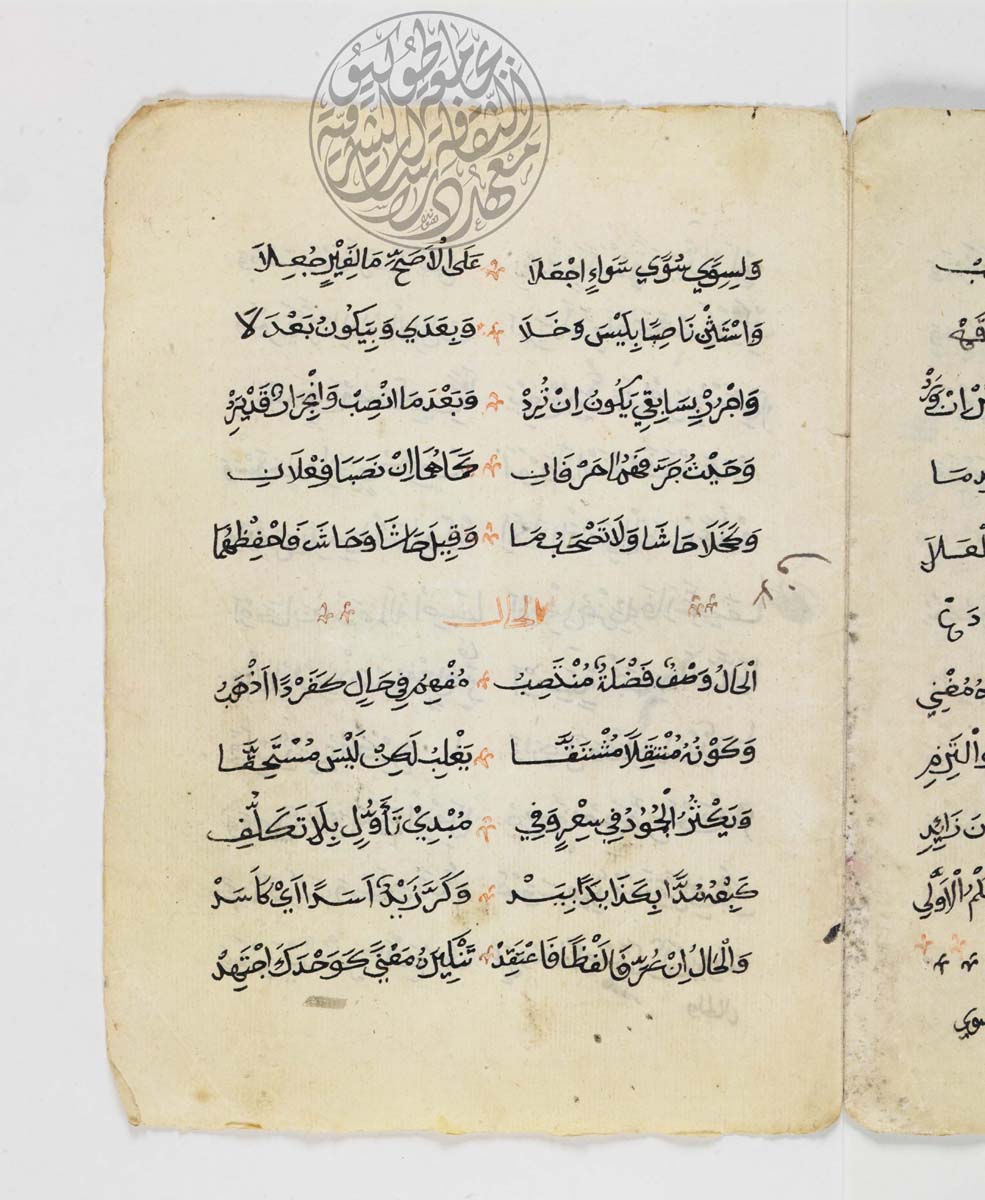 وَلِسِوًي سُوًي سَوَاءٍ اجْعَلَا عَلَى الْاَصَحِّ مَا لِغَيْرٍ جُعِلَا
وَاسْتَثْنِ نَاصِبًا بِلَيْسَ وَخَلَا وَبِعَدَي وَبِيَكُونُ بَعْدَ لَا
وَاجْرُرْ بِسَابِقَي يَكُونُ اِنْ تُرِدْ وَبَعْدَ مَا انْصِبْ وَانْجِرَارٌ قَدْ يَرِدْ
وَحَيْثُ جَرَّ فَهُمَا حَرْفَانِ كَمَا هُمَا اِنْ نَصَبَا فِعْلَانِ
وَكَخَلَا حَاشَا وَلَا تَصْحَبُ مَا وَقِيلَ حَاشَا وَحَاشَ فَاحْفِظْهُمَا
الحال
الْحَالُ وَصْفٌ فَضْلَةٌ مُنْتَصِبُ مُفْهِمُ فِي حَالِ كَفَرْدًا اَذْهَبُ
وَكَوْنُهُ مُنْتَقِلًا مُشْتَقًّا يَغْلِبُ لَكِنْ لَيْسَ مُسْتَحِقًّا
وَيَكْثُرُ الْجُودُ فِي سِعْرٍ وَفِي مُبْدِيْ تَأَوُّلٍ بِلَا تَكَلُّفِ
كَبِعْهُ مُدًّا بِكَذَا يَدًا بِيَدْ وَكَرَّ زَيْدٌ اَسَدًا اَيْ كَاَسَدْ
وَالْحَالُ اِنْ عُرِّفَ لَفْظًا فَاعْتَقِدْ تَنْكِيرَهُ مَعْنًي كَوَحْدَكَ اجْتَهِدْ